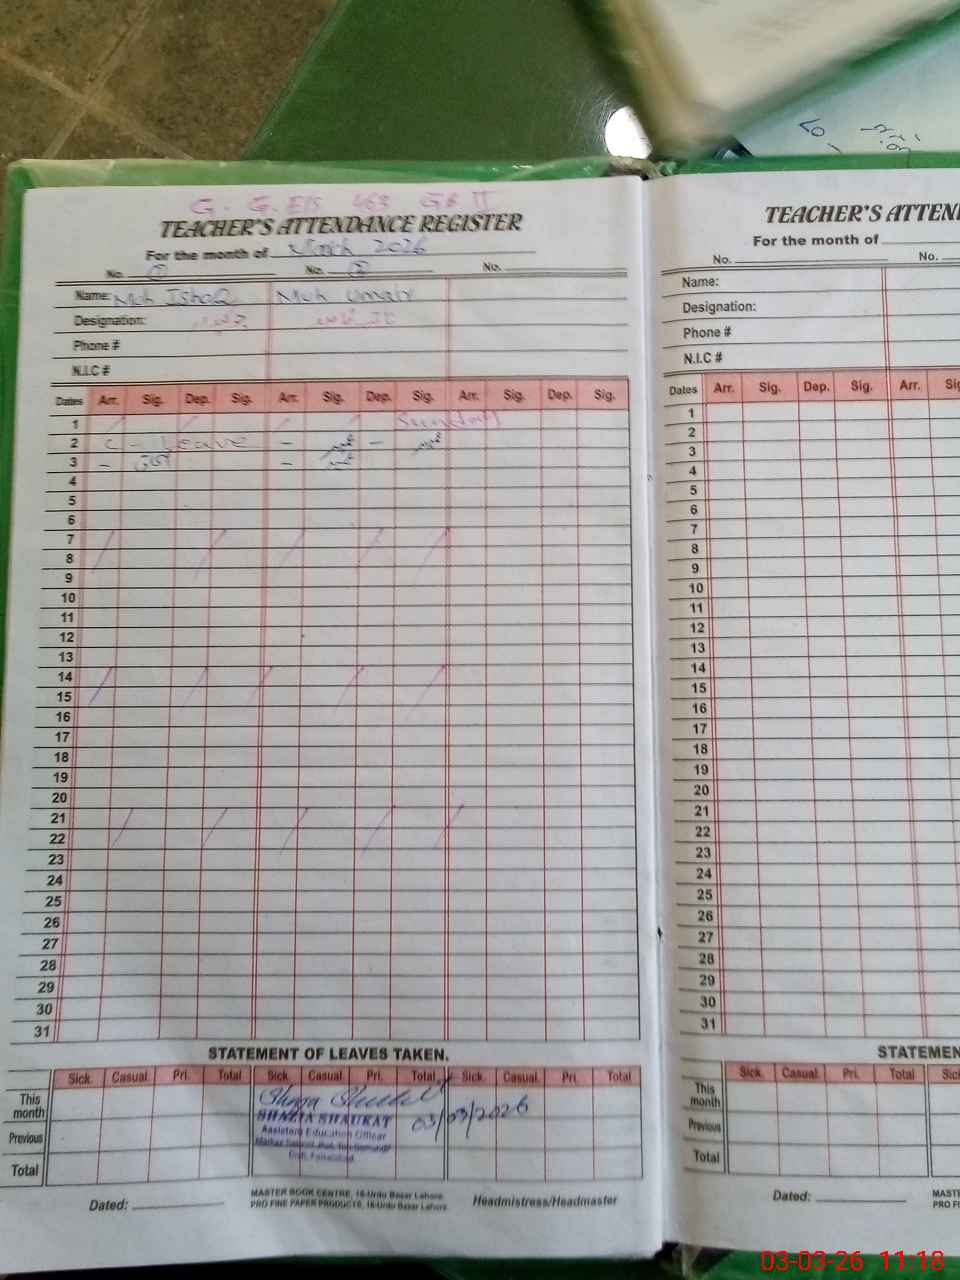 G. G.E/S 463 GB II
TEACHER'S ATTENDANCE REGISTER
For the month of March 2026
No. 1 No. 2 No.
Name: Muh IshaQ Muh Umair
Designation:
Phone #
N.I.C #
Dates Arr. Sig. Dep. Sig. Arr. Sig. Dep. Sig. Arr. Sig. Dep. Sig.
1 Sunday
2 C - Leave - -
3 - -
4
5
6
7
8
9
10
11
12
13
14
15
16
17
18
19
20
21
22
23
24
25
26
27
28
29
30
31
STATEMENT OF LEAVES TAKEN.
Sick. Casual. Pri. Total Sick. Casual. Pri. Total Sick. Casual. Pri. Total
This month
Previous
Total
SHAZIA SHAUKAT
Assistant Education Officer
Distt. Faisalabad
03/03/2026
Dated:
MASTER BOOK CENTRE, 16-Urdu Bazar Lahore.
PRO FINE PAPER PRODUCTS, 16-Urdu Bazar Lahore.
Headmistress/Headmaster
TEACHER'S ATTEN
For the month of
No. No.
Name:
Designation:
Phone #
N.I.C #
Dates Arr. Sig. Dep. Sig. Arr. Sig
1
2
3
4
5
6
7
8
9
10
11
12
13
14
15
16
17
18
19
20
21
22
23
24
25
26
27
28
29
30
31
STATEMEN
Sick. Casual. Pri. Total Sic
This month
Previous
Total
Dated:
MAST
PRO FI
03-03-26 11:18